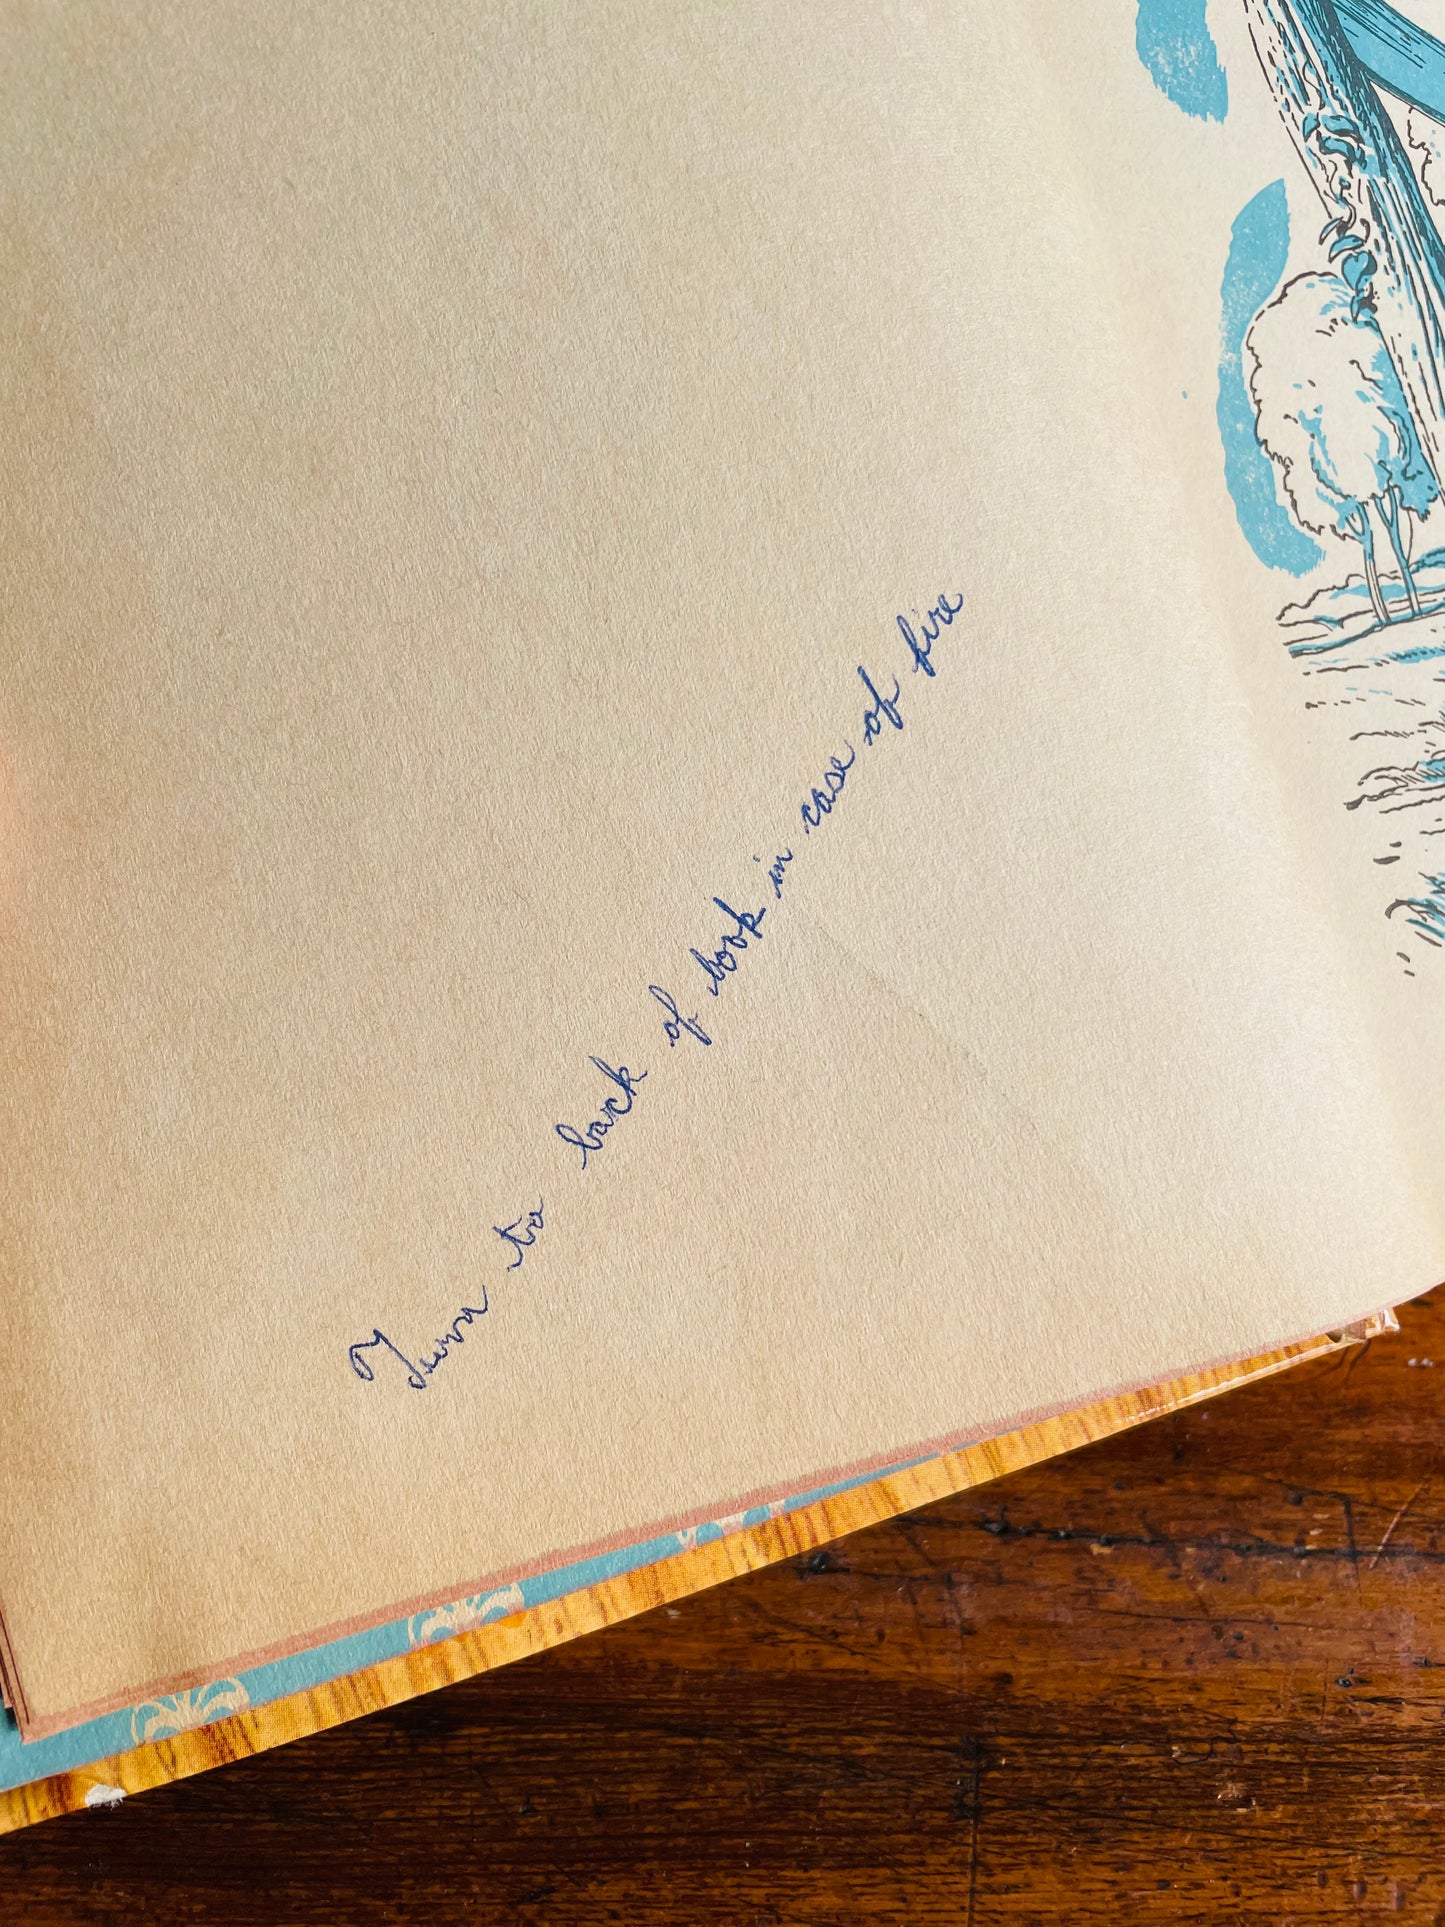 Turn to back of book in case of fire